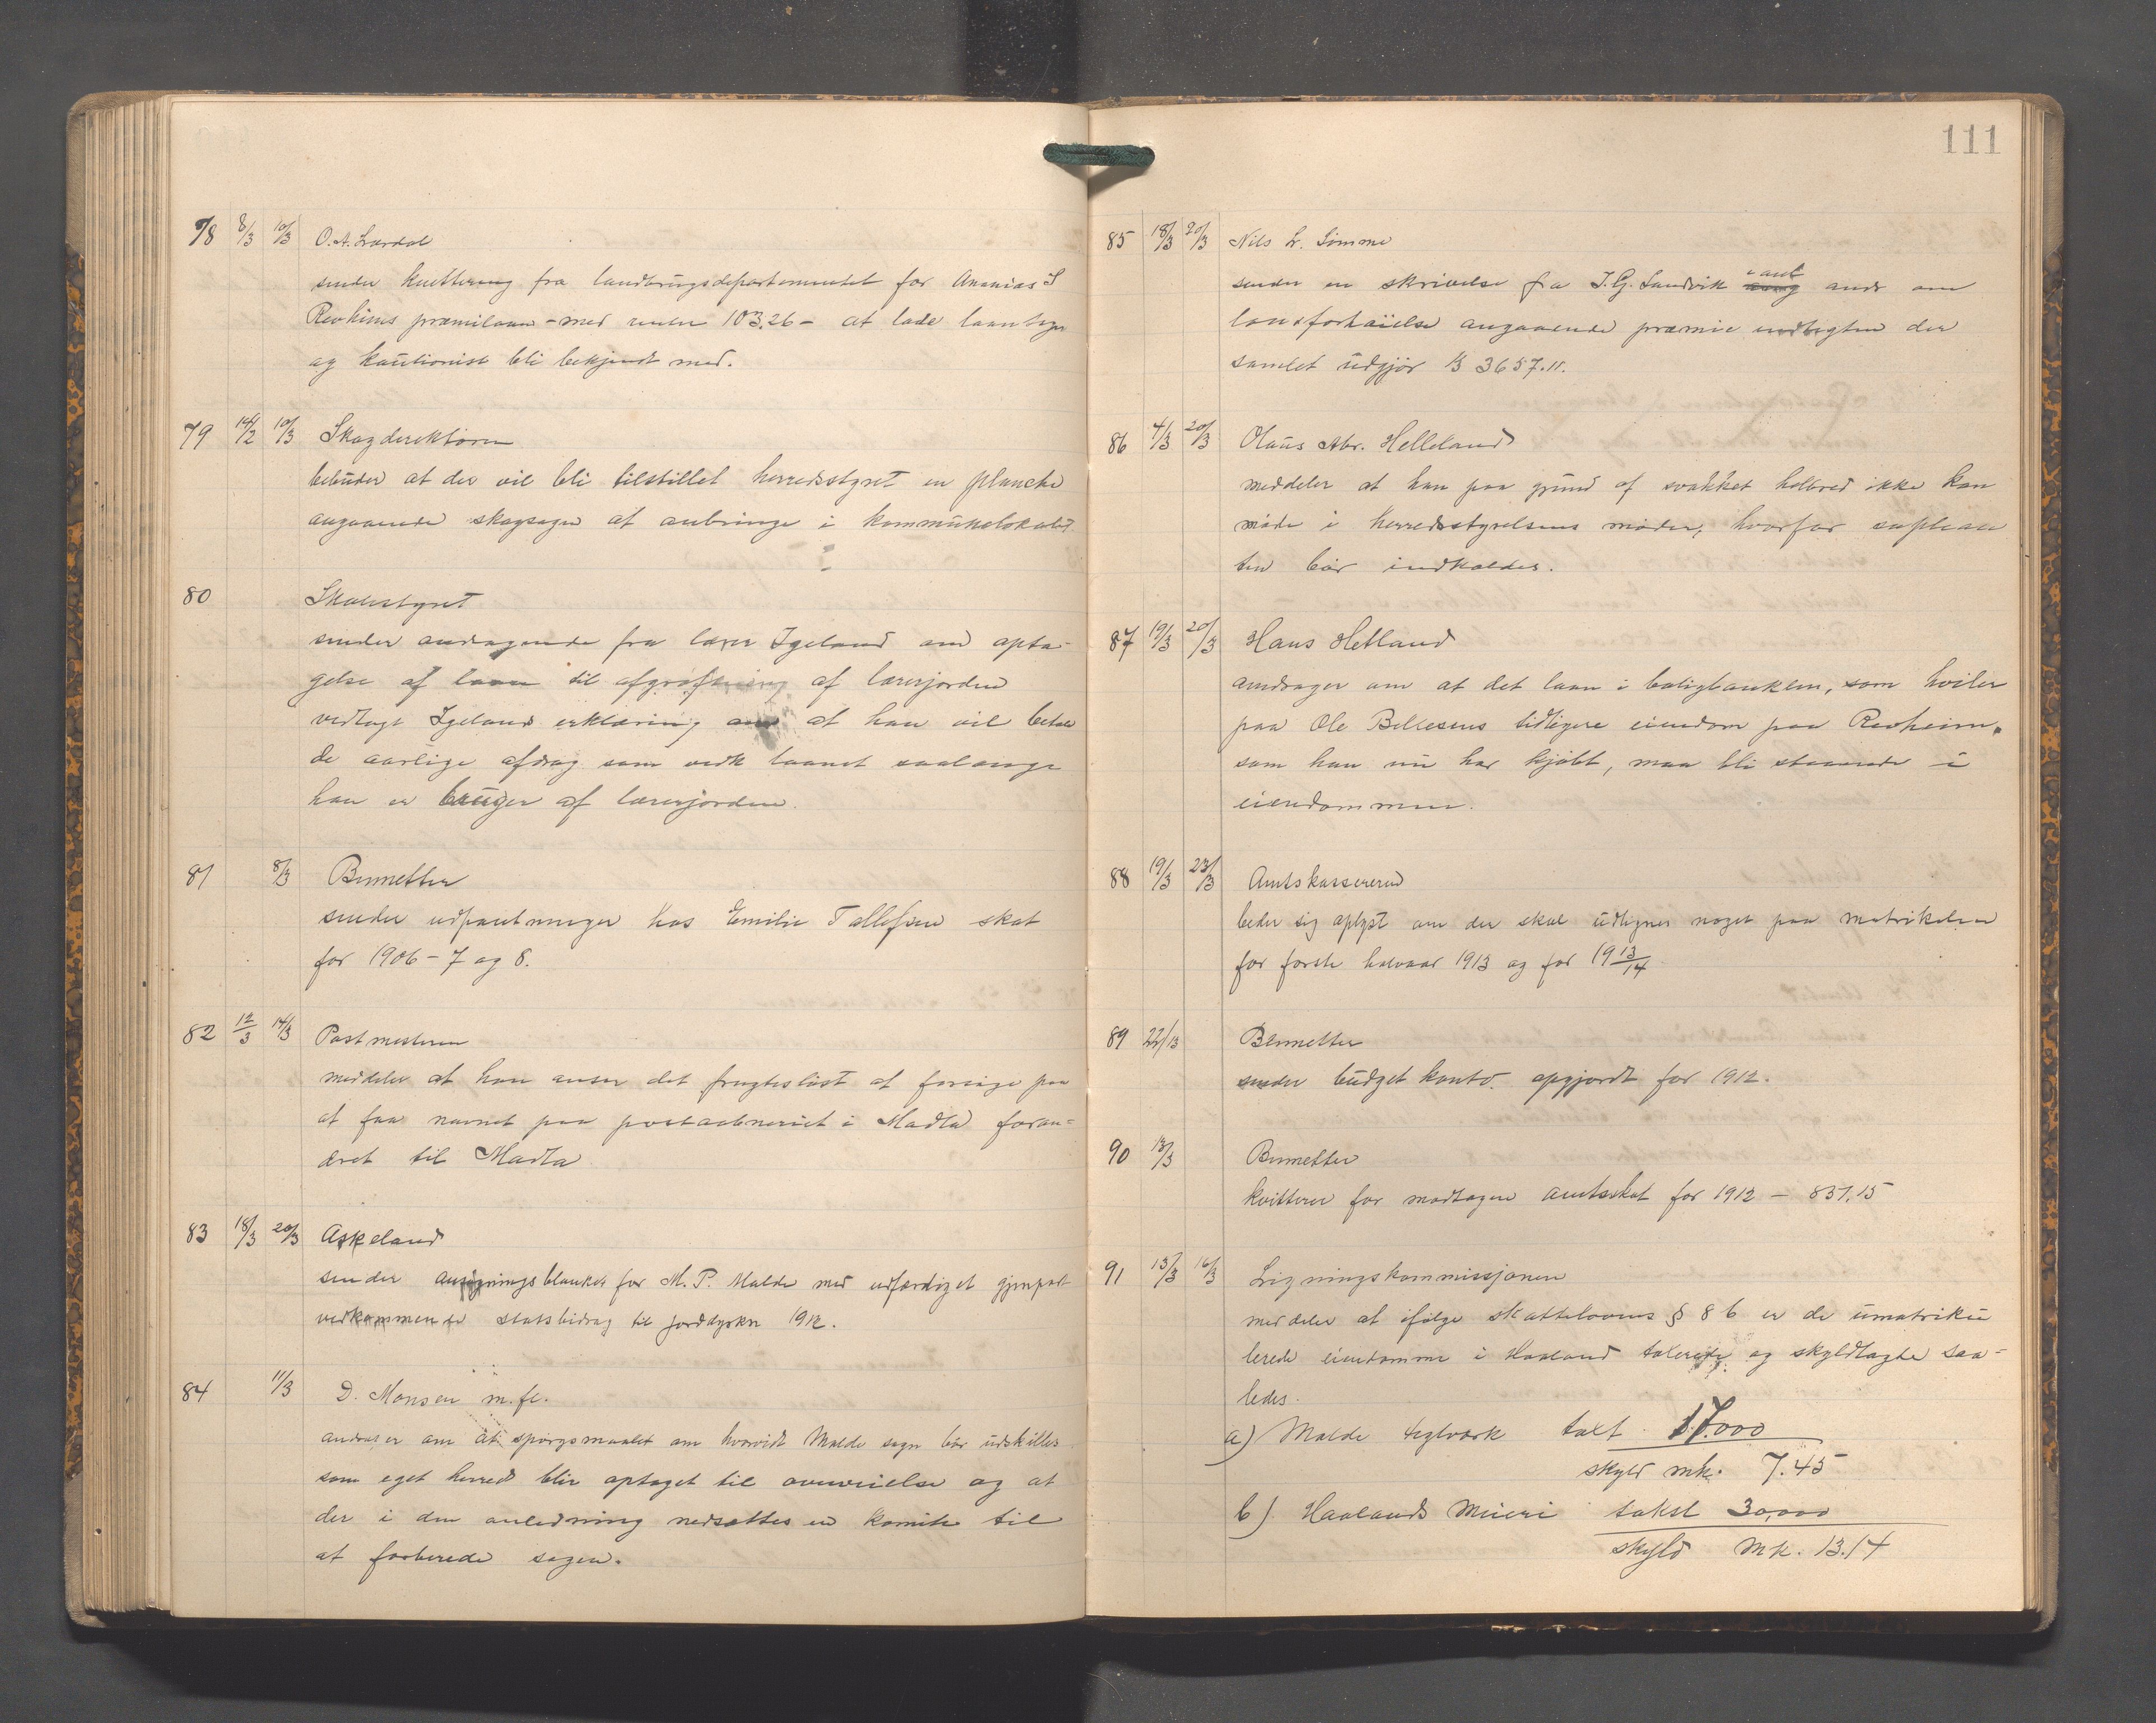 78 8/3 10/3 O. A. Lærdal
sender kvittering fra landbrugsdepartementet for Ananias S
Revheims præmilaan – med renter 103.26 – at lade laantager
og kautionist bli bekjendt med.
79 14/2 10/3 Skogdirektøren
bebuder at der vil bli tilstillet herredsstyret en planche
angaaende skogsagen at anbringe i kommunelokalet.
80 Skolestyret
sender andragende fra lærer Igeland om opta-
gelse af laan til afgrøftning af lærerjorden
vedlagt Igelands erklæring om at han vil beta
de aarlige afdrag som vedk laanet saalænge
han er bruger af lærerjorden.
81 8/3 Brunetter
sender udpantninger hos Emilie Tallefsen skat
for 1906 – 7 og 8.
82 12/3 14/3 Postmesteren
meddeler at han anser det frugtesløst at forsøge paa
at faa navnet paa postaabneriet i Madla foran-
dret til Madla
83 18/3 20/3 Askeland
sender anvisningsblanket for M. P. Malde med udfærdiget gjenpart
vedkommende statsbidrag til jorddyrkn 1912.
84 11/3 D. Monsen m. fl.
andrager om at spørgsmaalet om hvorvidt Malde sogn bør udskilles
som eget herred blir optaget til overveielse og at
der i den anledning nedsættes en komite til
at forberede sagen.
111
85 18/3 20/3 Nils L. Sømme
sender en skrivelse fra J. G. Sandvik andr om
lønsforhøielse angaaende præmie der
samlet udgjør kr 3657.11.
86 4/3 20/3 Olaus Abr. Helleland
meddeler at han paa grund af svækket helbred ikke kan
møde i herredsstyrelsens møder, hvorfor suplean
ten bør indkaldes.
87 19/3 20/3 Hans Hetland
andrager om at det laan i boligbanken, som hviler
paa Ole Bellesens tidligere eiendom paa Revheim,
som han nu har kjøbt, maa bli staaende i
eiendommen.
88 19/3 23/3 Amtskassereren
beder sig oplyst om der skal udlignes noget paa matrikelen
for første halvaar 1913 og for 19 13/14
89 22/13 Brunetter
sender budget konto opgjordt for 1912.
90 13/3 Brunetter
kvitterer for modtagen amtsskat for 1912 – 837.15
91 13/3 16/3 Ligningskommissjonen
meddeler at ifølge skattelovens § 8 b er de umatriku
lerede eiendomme i Haaland takserte og skyldlagte saa-
ledes.
a) Malde teglværk taxt 17.000
skyld mk. 7.45
b) Haalands Meieri takst 30,000
skyld mk. 13.14